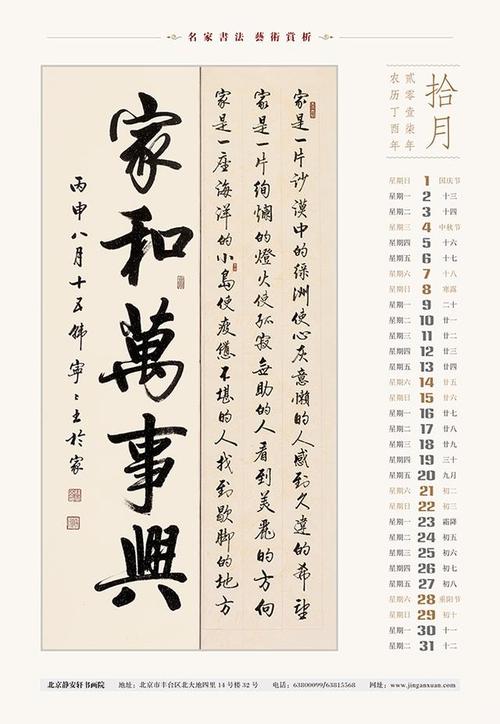 名家書法 藝術賞析
拾月
贰零壹柒年
农历丁酉年
家是一片沙漠中的綠洲使心灰意懶的人感到久違的希望
家是一片絢爛的燈火使孤寂無助的人看到美麗的方向
家是一座海洋的小島使疲憊不堪的人找到歇脚的地方
家和萬事興
丙申八月十五
於家
星期日 1 国庆节
星期一 2 十三
星期二 3 十四
星期三 4 中秋节
星期四 5 十六
星期五 6 十七
星期六 7 十八
星期日 8 寒露
星期一 9 二十
星期二 10 廿一
星期三 11 廿二
星期四 12 廿三
星期五 13 廿四
星期六 14 廿五
星期日 15 廿六
星期一 16 廿七
星期二 17 廿八
星期三 18 廿九
星期四 19 三十
星期五 20 九月
星期六 21 初二
星期日 22 初三
星期一 23 霜降
星期二 24 初五
星期三 25 初六
星期四 26 初七
星期五 27 初八
星期六 28 重阳节
星期日 29 初十
星期一 30 十一
星期二 31 十二
北京静安轩书画院 地址：北京市丰台区北大地四里14号楼32号 电话：63800099/63815568 网址：www.jinganxuan.com